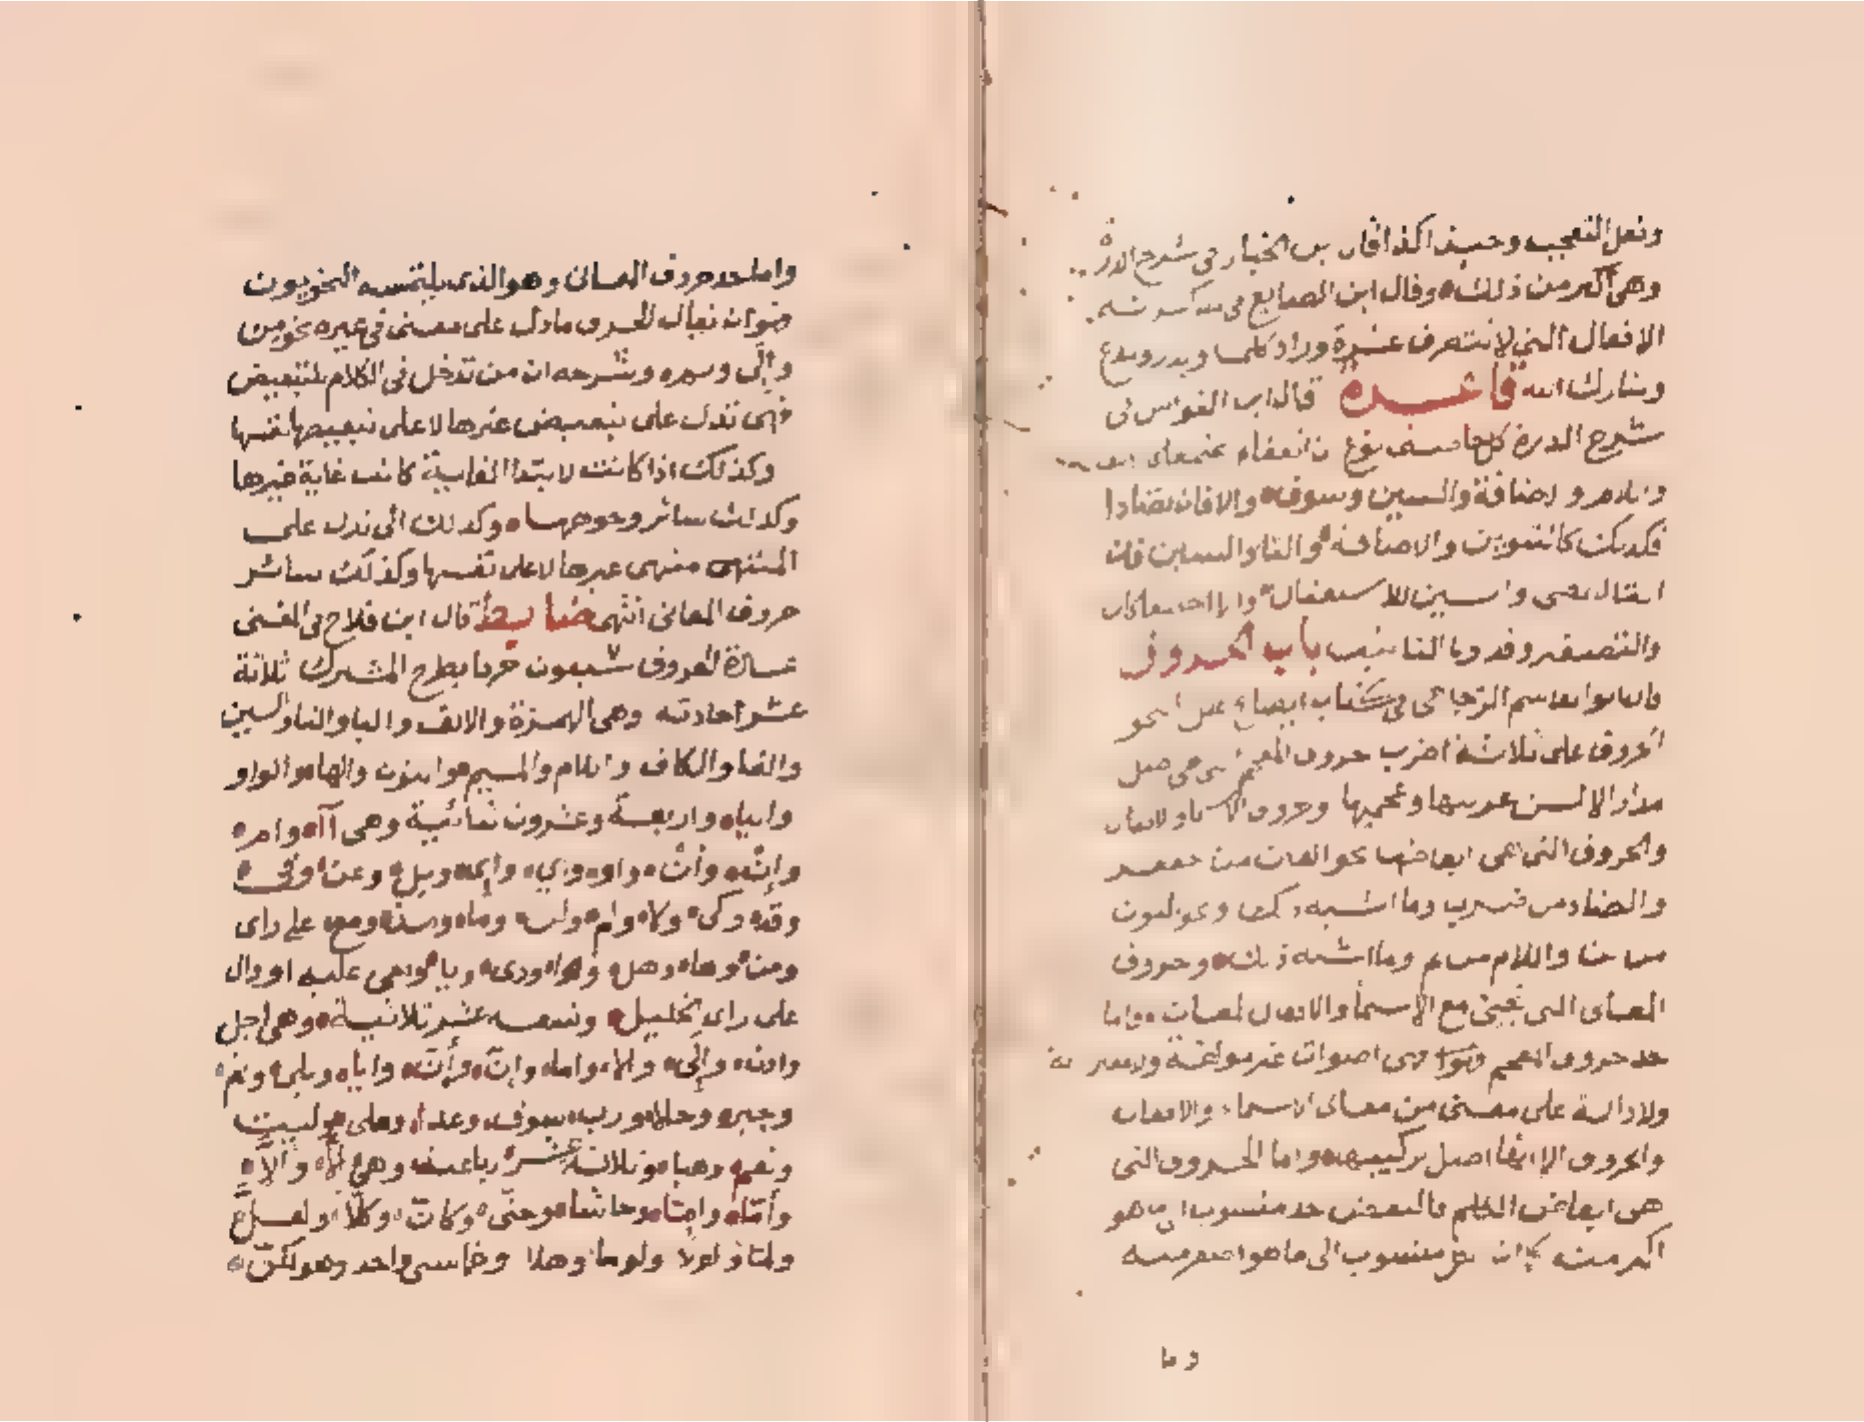 وفعل التعجب وحبذا كذا قال ابن الخباز في شرح الدرة
وهي اكثر من ذلك وقال ابن الصايغ في تذكرته
الافعال التي لا تتصرف عشرة وزاد قلما ويذر ويدع
وتبارك الله فائدة قال ابن القواس في
شرح الدرة كل خاصتي نوع ان اتفقا لم يجتمعا
واللام والاضافة والسين وسوف والا فان تضادا
فكذلك كالتنوين والاضافة والتا والسين فان
والتصغير وقد وتا التانيث باب الحروف
قال ابو القاسم الزجاجي في كتاب ايضاح علل النحو
الحروف على ثلاثة اضرب حروف المعجم التي هي اصل
مدار الالسن عربيها وعجميها وحروف الاسما والافعال
والحروف التي هي ابعاضها نحو العين من جعفر
والضاد من ضرب وما اشبه ذلك ونحو النون
من من واللام من لم وما اشبه ذلك وحروف
المعاني التي تجيئ مع الاسما والافعال لمعان واما
حد حروف المعجم فهي اصوات غير مولفة ولا مقترنة
ولا دالة على معنى من معاني الاسماء والافعال
والحروف الا انها اصل تركيبها واما الحروف التي
هي ابعاض الكلم فالبعض حد منسوب الى ما هو
اكثر منه كما ان الكل منسوب الى ما هو اصغر منه
وما
واما حد حروف المعاني وهو الذي يلتمسه النحويون
فهو ان يقال الحرف ما دل على معنى في غيره نحو من
والى وثم وشرحه ان من تدخل في الكلام للتبعيض
فهي تدل على تبعيض غيرها لا على تبعيضها نفسها
وكذلك اذا كانت لابتدا الغاية كانت غاية غيرها
وكذلك سائر وجوهها وكذلك الى تدل على
المنتهى منتهى غيرها لا على نفسها وكذلك سائر
حروف المعاني انتهى ضابط قال ابن فلاح في المغني
عدة الحروف سبعون حرفا بطرح المشترك ثلاثة
عشر احادية وهي الهمزة والالف والبا والتا والسين
والفا والكاف واللام والميم والنون والها والواو
واليا واربعة وعشرون ثنائية وهي آ وام
وإن وأن واو واي وإي وبل وعن وفي
وقد وكي ولا ولم ولن وما ومذ ومع على راي
ومن وها وهل ووا ووي ويا وهي عليه او وال
على راي الخليل وتسعة عشر ثلاثية وهي اجل
واذن وإلى وألا واما وإنّ وأنّ وايا وبلى وثم
وجير وخلا ورب وسوف وعدا وعلى وليت
ونعم وهيا وثلاثة عشر رباعية وهي إلا وألا
وأمّا وإمّا وحاشا وحتى وكان وكلا ولعل
ولما ولولا ولوما وهلا وخماسي واحد وهو لكن